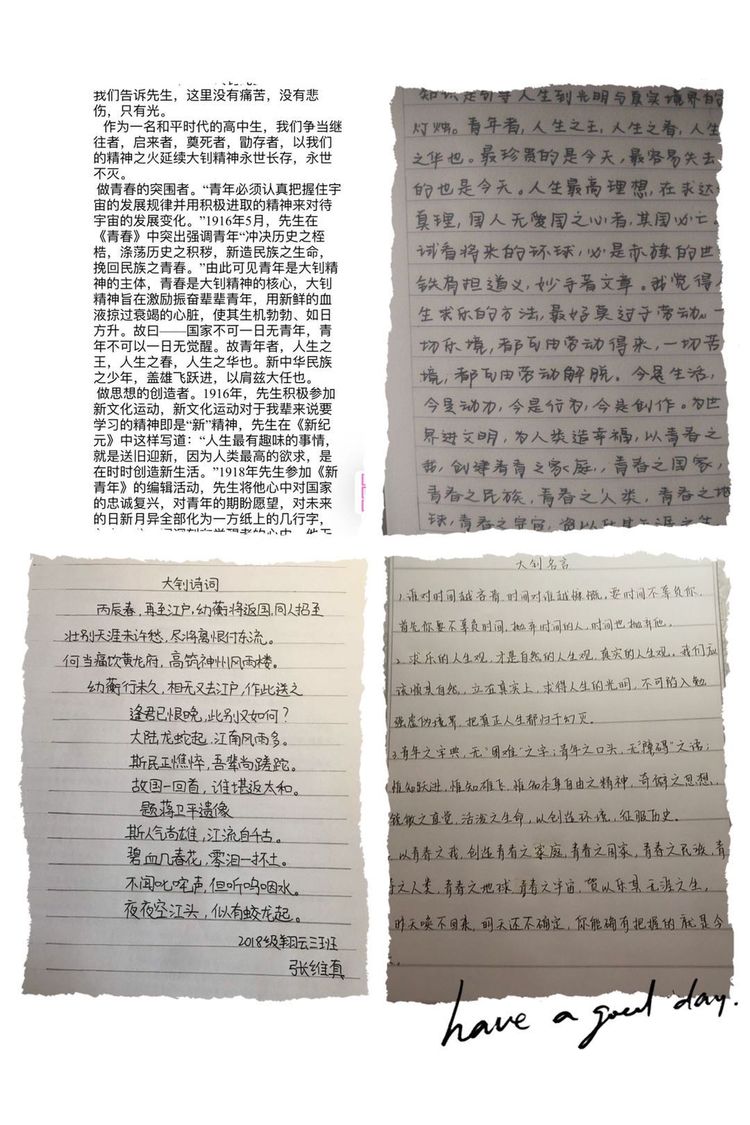 我们告诉先生，这里没有痛苦，没有悲
伤，只有光。
作为一名和平时代的高中生，我们争当继
往者，启来者，奠死者，勖存者，以我们
的精神之火延续大钊精神永世长存，永世
不灭。
做青春的突围者。“青年必须认真把握住宇
宙的发展规律并用积极进取的精神来对待
宇宙的发展变化。”1916年5月，先生在
《青春》中突出强调青年“冲决历史之桎
梏，涤荡历史之积秽，新造民族之生命，
挽回民族之青春。”由此可见青年是大钊精
神的主体，青春是大钊精神的核心，大钊
精神旨在激励振奋辈辈青年，用新鲜的血
液掠过衰竭的心脏，使其生机勃勃、如日
方升。故曰——国家不可一日无青年，青
年不可以一日无觉醒。故青年者，人生之
王，人生之春，人生之华也。新中华民族
之少年，盖雄飞跃进，以肩兹大任也。
做思想的创造者。1916年，先生积极参加
新文化运动，新文化运动对于我辈来说要
学习的精神即是“新”精神，先生在《新纪
元》中这样写道：“人生最有趣味的事情，
就是送旧迎新，因为人类最高的欲求，是
在时时创造新生活。”1918年先生参加《新
青年》的编辑活动，先生将他心中对国家
的忠诚复兴，对青年的期盼愿望，对未来
的日新月异全部化为一方纸上的几行字，
知识是引导人生到光明与真实境界的
灯烛。青年者，人生之王，人生之春，人生
之华也。最珍贵的是今天，最容易失去
的也是今天。人生最高理想，在求达
真理，国人无爱国之心者，其国必亡。
试看将来的环球，必是赤旗的世
铁肩担道义，妙手著文章。我觉得人
生求乐的方法，最好莫过于劳动。一
切乐境，都可由劳动得来，一切苦
境，都可由劳动解脱。今是生活，
今是动力，今是行为，今是创作。为世
界进文明，为人类造幸福，以青春之
我，创建青春之家庭，青春之国家，
青春之民族，青春之人类，青春之地
球，青春之宇宙，资以乐其无涯之生
大钊诗词
丙辰春，再至江户，幼蘅将返国，同人招至
壮别天涯未许愁，尽将离恨付东流。
何当痛饮黄龙府，高筑神州风雨楼。
幼蘅行未久，相无又去江户，作此送之
逢君已恨晚，此别又如何？
大陆龙蛇起，江南风雨多。
斯民正憔悴，吾辈尚蹉跎。
故国一回首，谁堪返太和。
题蒋卫平遗像
斯人气尚雄，江流自千古。
碧血几春花，零泪一抔土。
不闻叱咤声，但听呜咽水。
夜夜空江头，似有蛟龙起。
2018级翔云三班
张维真
大钊名言
1.谁对时间越吝啬，时间对谁越慷慨，要时间不辜负你，
首先你要不辜负时间，抛弃时间的人，时间也抛弃他。
2.求乐的人生观，才是自然的人生观，真实的人生观，我们应
该顺其自然，立在真实上，求得人生的光明，不可陷入勉
强虚伪境界，把真正人生都归于幻灭。
3.青年之字典，无“困难”之字；青年之口头，无“障碍”之话；
惟知跃进，惟知雄飞，惟知本身自由之精神，奇僻之思想，
敏锐之直觉，活泼之生命，以创造环境，征服历史。
以青春之我，创造青春之家庭，青春之国家，青春之民族，青
春之人类，青春之地球，青春之宇宙，资以乐其无涯之生。
昨天唤不回来，明天还不确定，你能确有把握的就是今
have a good day.